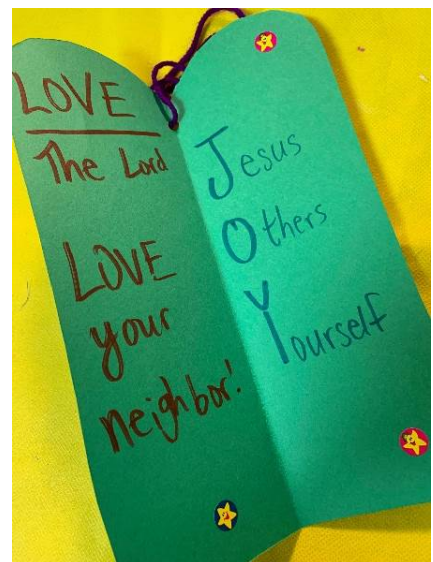 LOVE
The Lord
LOVE
your
neighbor!
Jesus
Others
Yourself